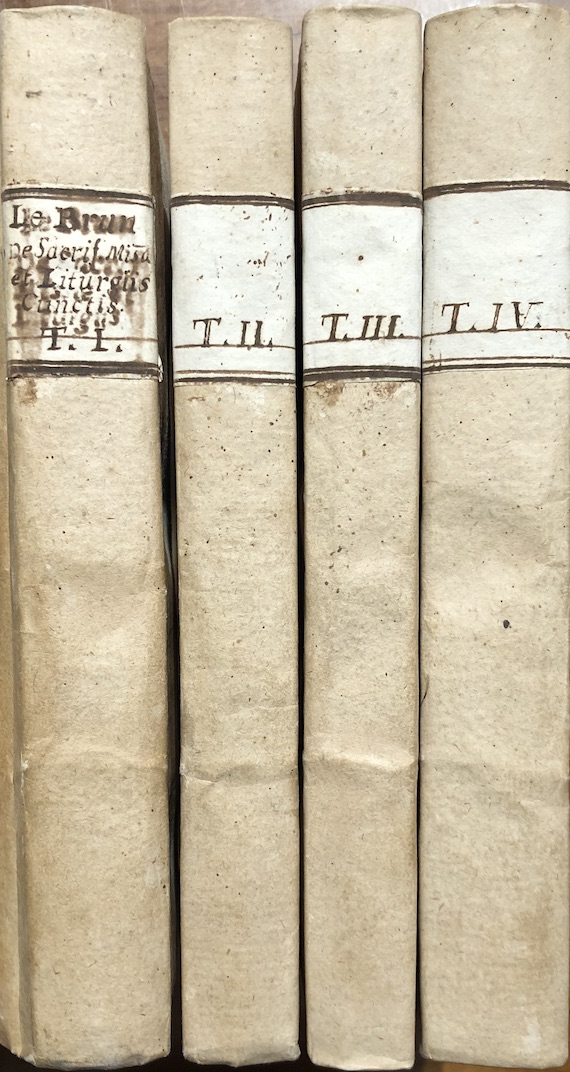 Le Brun
De Sacrif. Missa
et Liturgiis
Cunctis.
T. I.
T. II.
T. III.
T. IV.